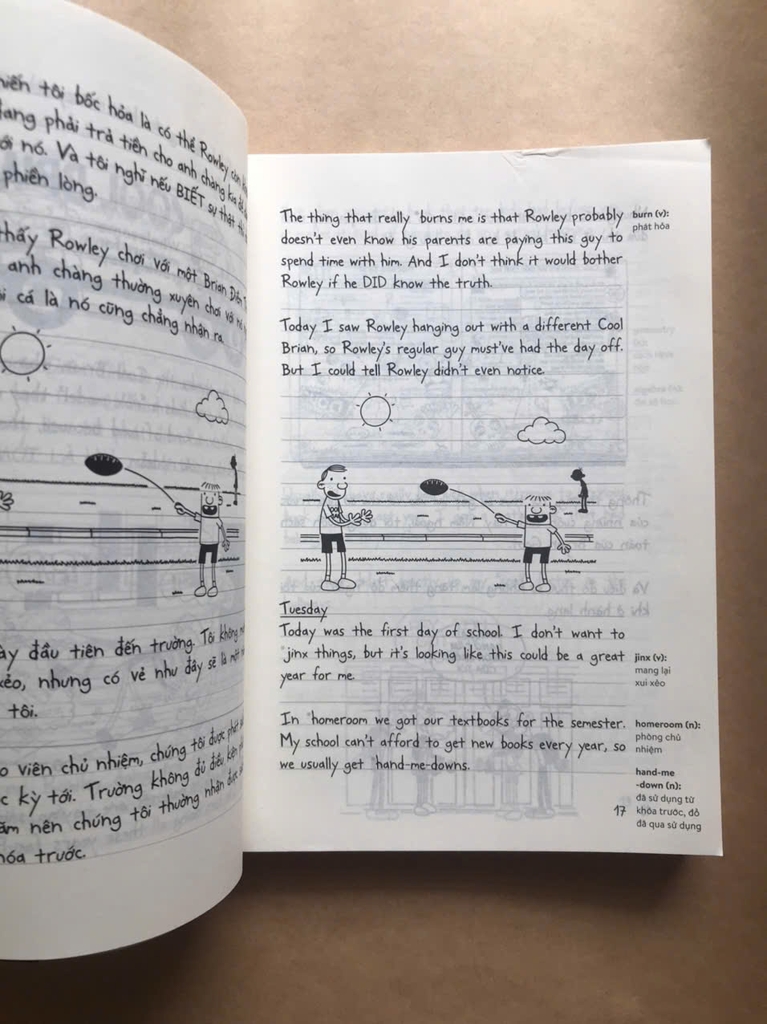 hiến tôi bốc hỏa là có thể Rowley còn
đang phải trả tiền cho anh chàng kia để
với nó. Và tôi nghĩ nếu BIẾT sự thật thì
phiền lòng.
thấy Rowley chơi với một Brian Điển
anh chàng thường xuyên chơi với nó
cá là nó cũng chẳng nhận ra.
ày đầu tiên đến trường. Tôi không
xẻo, nhưng có vẻ như đây sẽ là một
tôi.
o viên chủ nhiệm, chúng tôi được phát
c kỳ tới. Trường không đủ điều kiện
ăm nên chúng tôi thường nhận được
hóa trước.
The thing that really *burns me is that Rowley probably
doesn't even know his parents are paying this guy to
spend time with him. And I don't think it would bother
Rowley if he DID know the truth.
burn (v):
phát hỏa
Today I saw Rowley hanging out with a different Cool
Brian, so Rowley's regular guy must've had the day off.
But I could tell Rowley didn't even notice.
Tuesday
Today was the first day of school. I don't want to
*jinx things, but it's looking like this could be a great
year for me.
jinx (v):
mang lại
xui xẻo
In *homeroom we got our textbooks for the semester.
My school can't afford to get new books every year, so
we usually get *hand-me-downs.
homeroom (n):
phòng chủ
nhiệm
hand-me
-down (n):
đã sử dụng từ
khóa trước, đồ
đã qua sử dụng
17